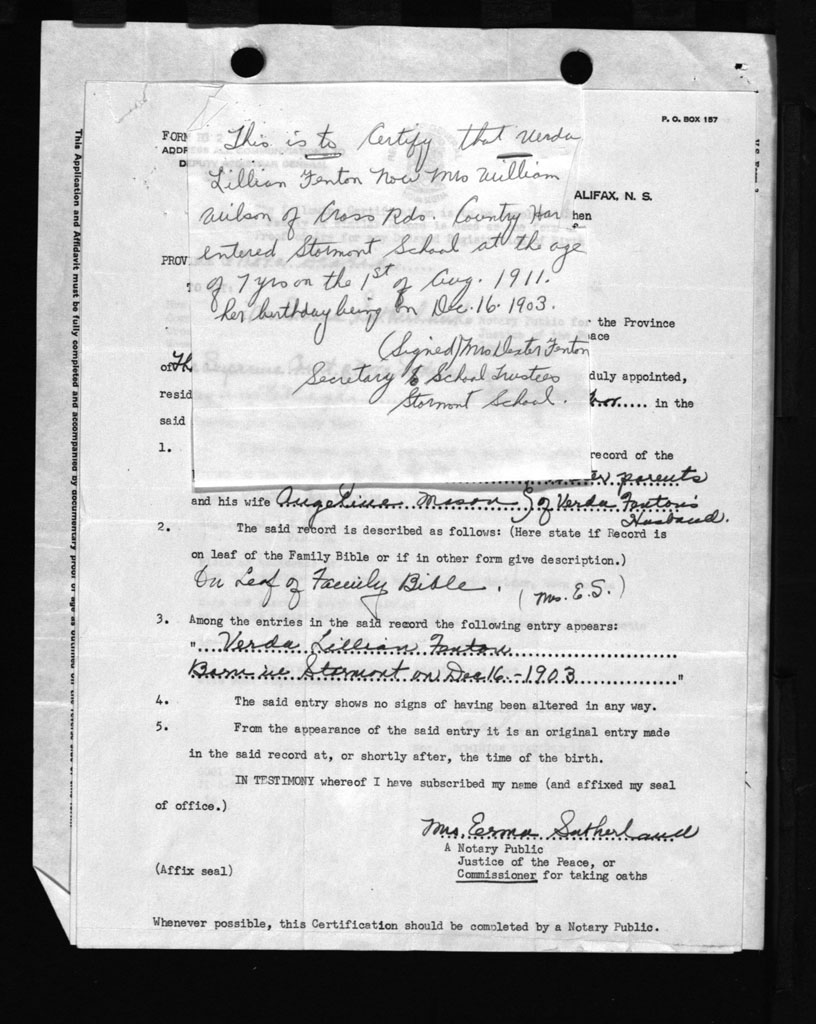 P. O. BOX 157
FORM
ADDR
D
ALIFAX, N. S.
hen
PROV
This is to Certify that Verda
Lillian Fenton Now Mrs William
Wilson of Cross Rds. Country Har
entered Stormont School at the age
of 7 yrs on the 1st of Aug. 1911.
her birthday being on Dec. 16. 1903.
(Signed) Mrs Dexter Fenton
Secretary to School Trustees
Stormont School.
the Province
ace
of Th
duly appointed,
resid
in the
said
1. record of the
parents
and his wife Angeline Mason } of Verda Fenton's
Husband.
2. The said record is described as follows: (Here state if Record is
on leaf of the Family Bible or if in other form give description.)
On Leaf of Family Bible. (Mrs. E.S.)
3. Among the entries in the said record the following entry appears:
"....Verda Lillian Fenton
Born in Stormont on Dec 16 - 1903 "
4. The said entry shows no signs of having been altered in any way.
5. From the appearance of the said entry it is an original entry made
in the said record at, or shortly after, the time of the birth.
IN TESTIMONY whereof I have subscribed my name (and affixed my seal
of office.)
Mrs. Erma Sutherland
A Notary Public
Justice of the Peace, or
(Affix seal) Commissioner for taking oaths
Whenever possible, this Certification should be completed by a Notary Public.
This Application and Affidavit must be fully completed and accompanied by documentary proof of age as outlined on the